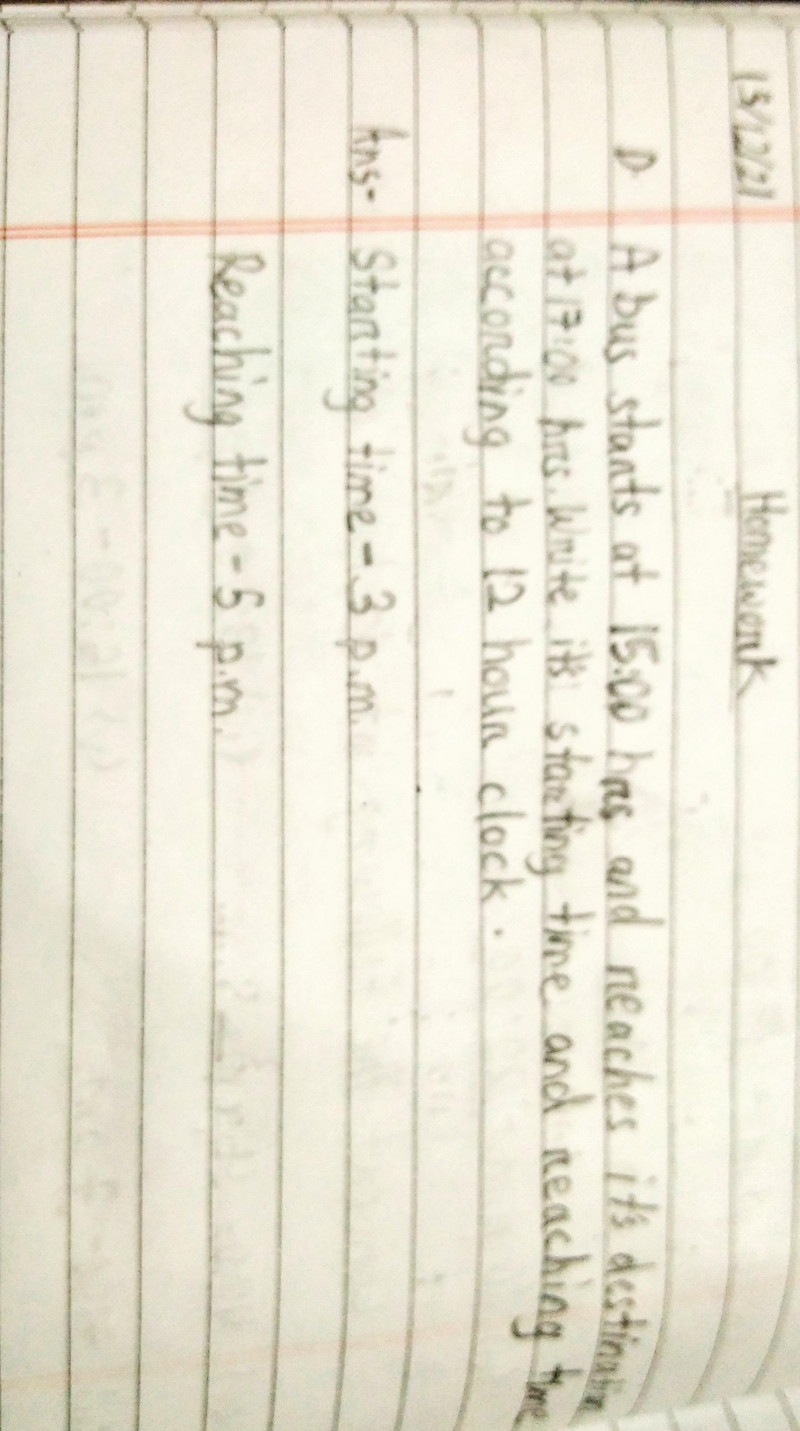 15/12/21
Homework
1) A bus starts at 15:00 hrs and reaches it's destination
at 17:00 hrs. Write it's starting time and reaching time
according to 12 hour clock.
Ans- Starting time - 3 p.m.
Reaching time - 5 p.m.